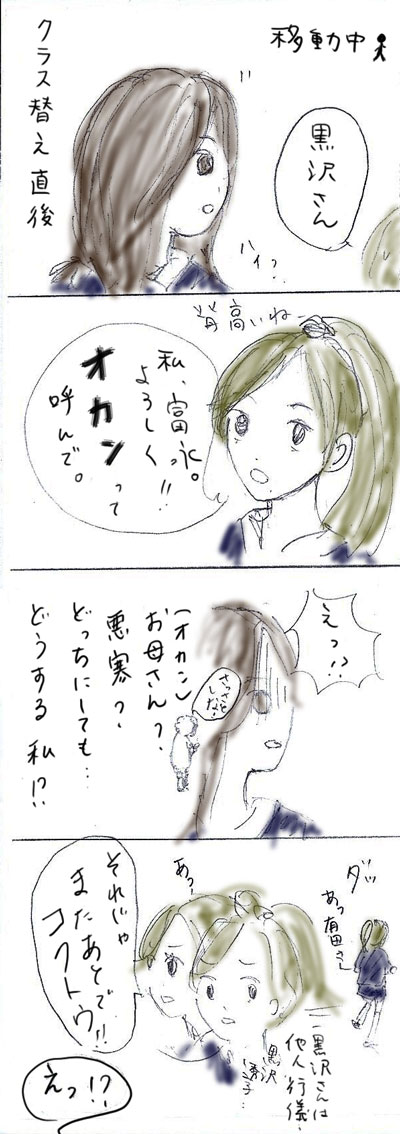 移動中
クラス替え直後
黒沢さん
ハイっ
背高いねー
私、富永。
よろしくっ!!
オカンって
呼んで。
えっ!?
さっさと
しな!
(オカン)
お母さん?
悪寒?
どっちにしても…
どうする私!?
ダッ
あっ有田さん
あっ
それじゃ
またあとで!!
コクトウ
黒沢さんは
他人行儀
黒沢
えっ!?